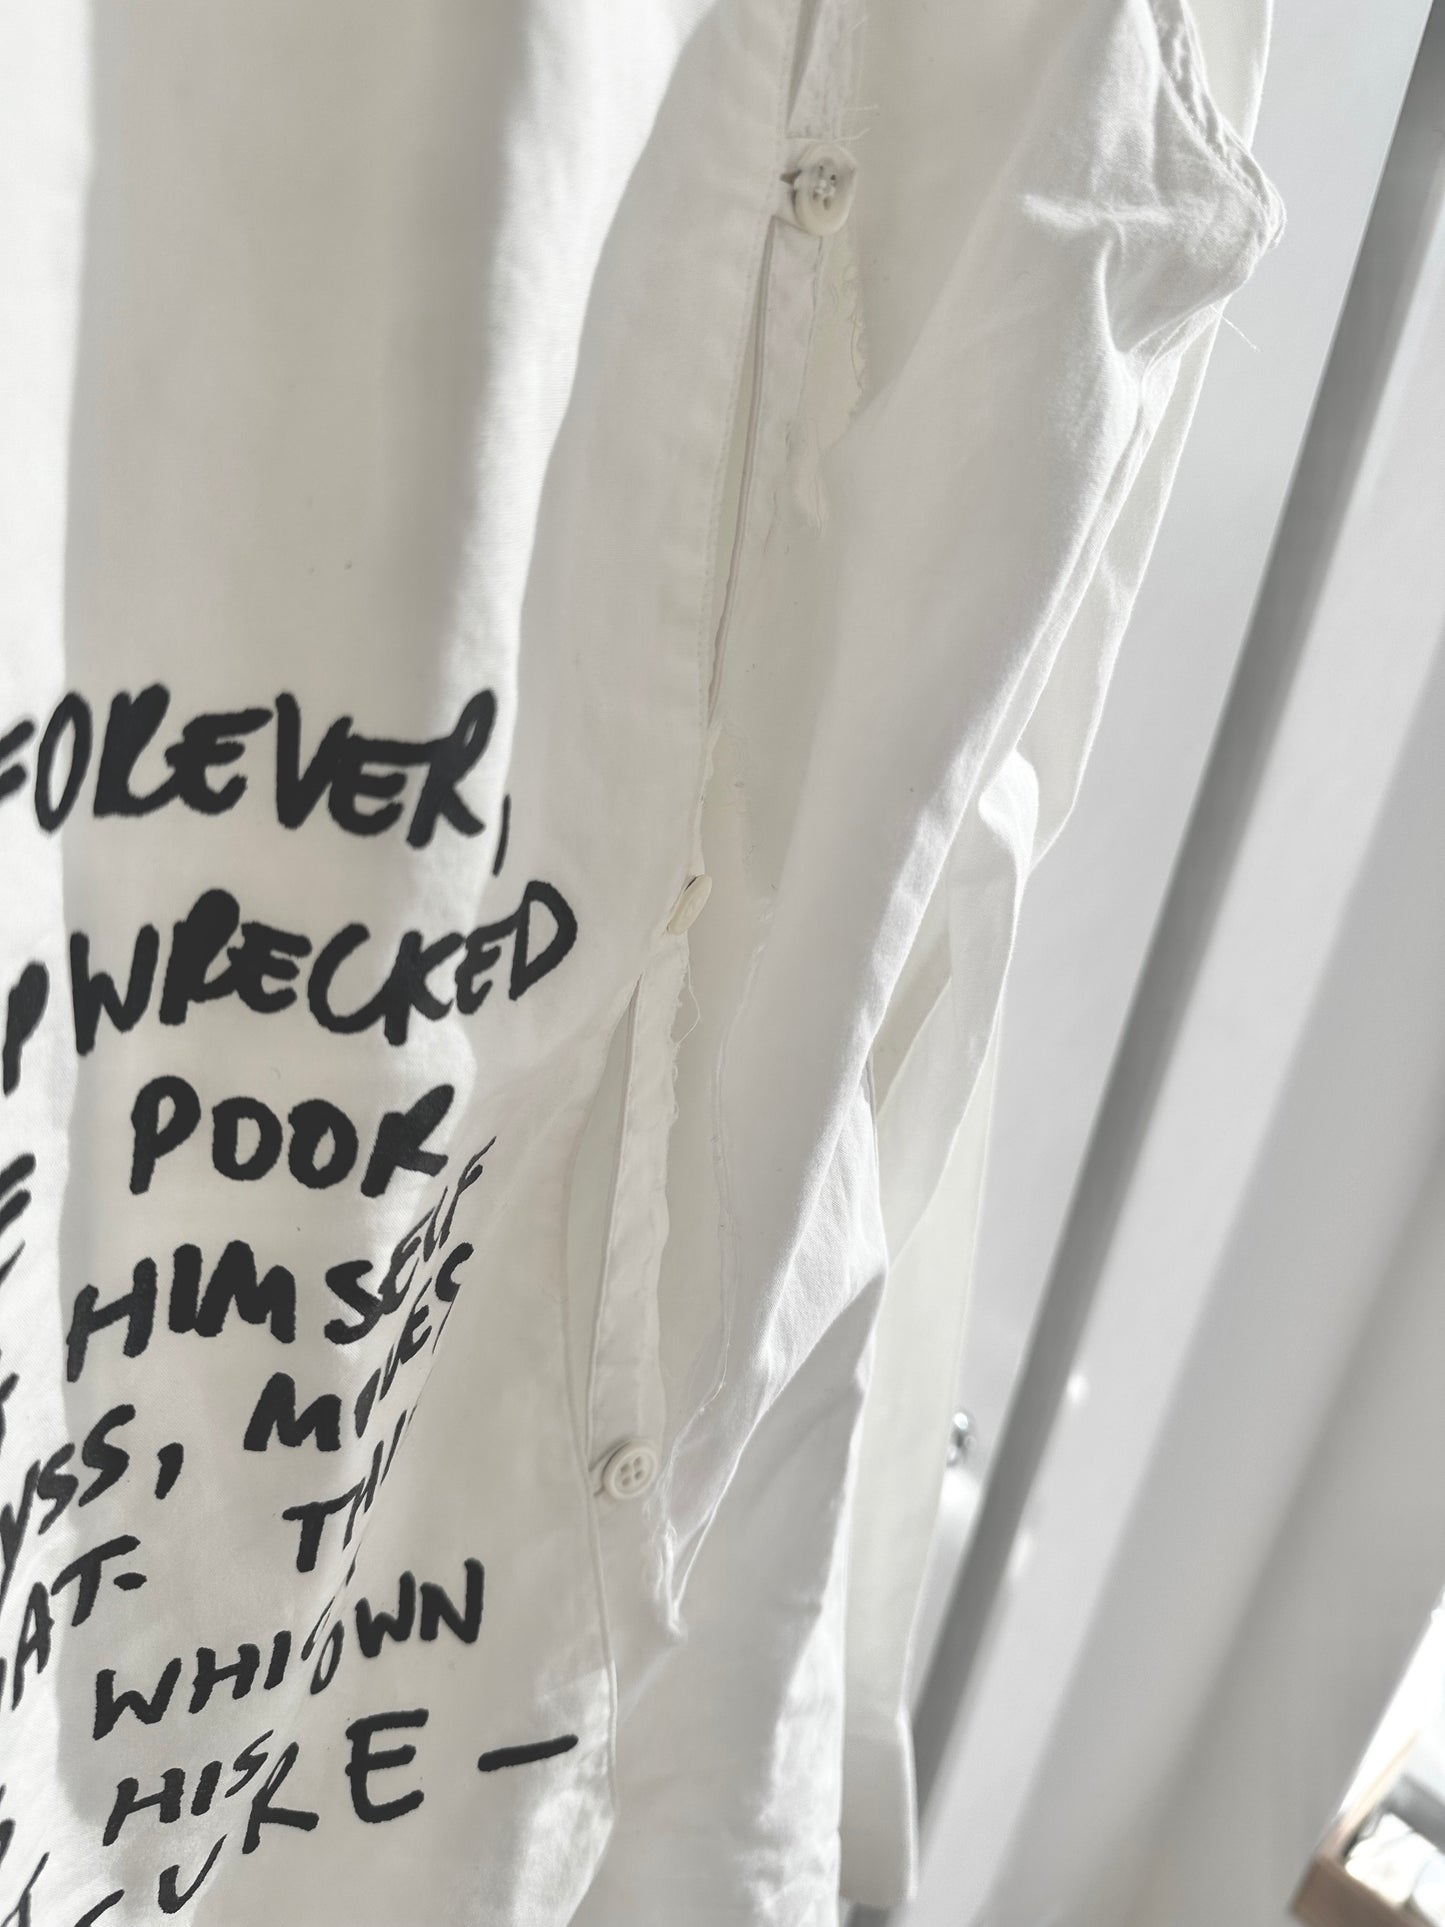 FOREVER,
PWRECKED
POOR
HIMSELF
YSS, MOVES
AT- TH
WHIS OWN
HIS
CURE —